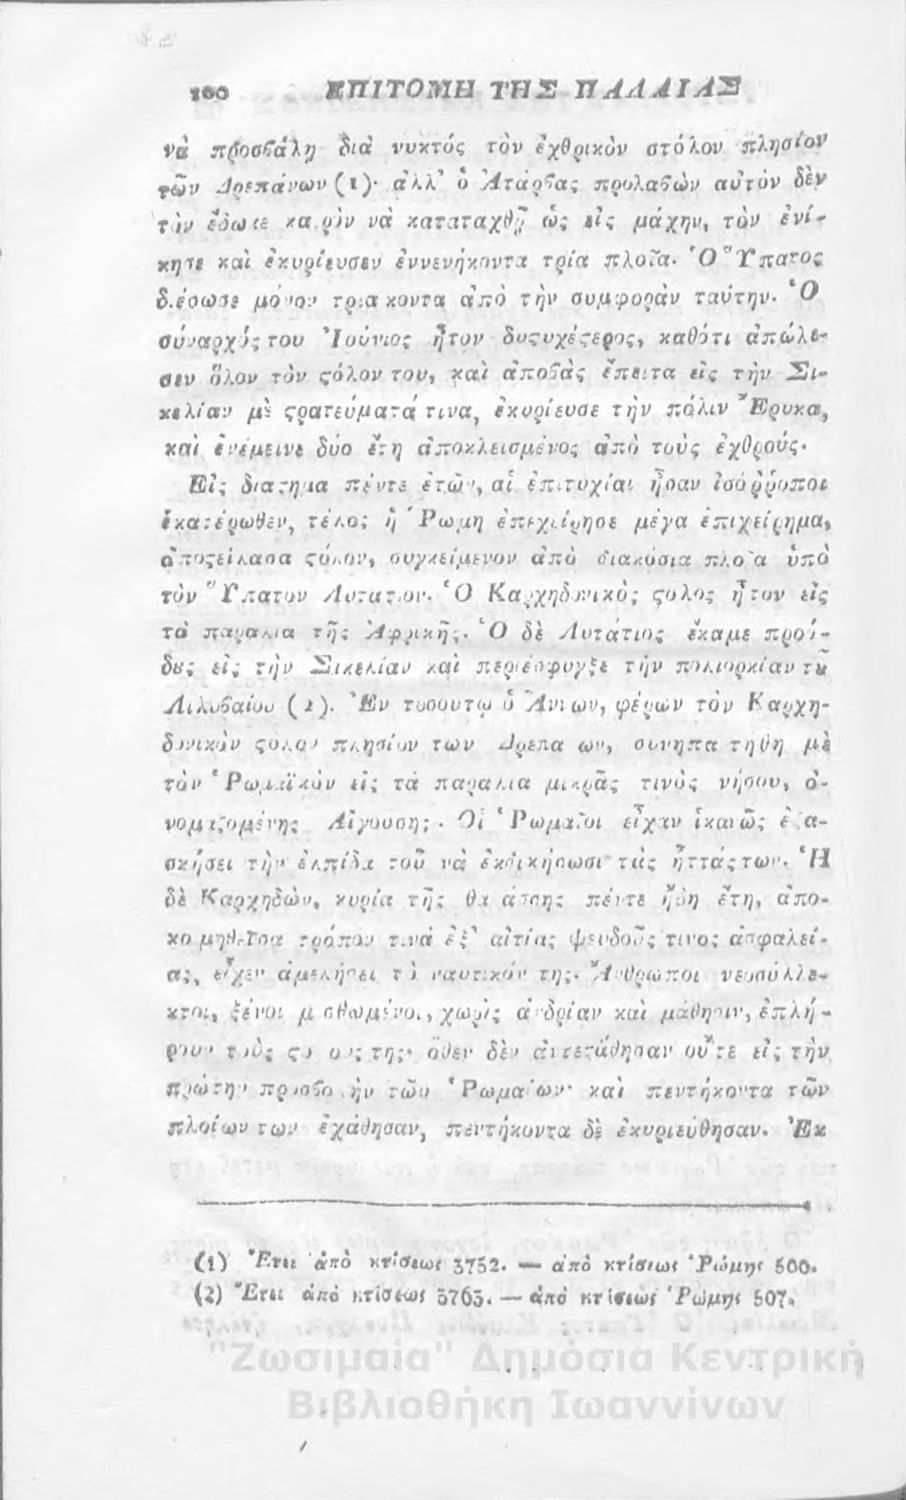 100 ΕΠΙΤΟΜΗ ΤΗΣ ΠΑΛΑΙΑΣ
νὰ προσβάλῃ διὰ νυκτός τὸν ἐχθρικὸν στόλον πλησίον
τῶν Δρεπάνων (1)· ἀλλ' ὁ Ἀτάρβας προλαβὼν αὐτόν δὲν
τὸν ἔδωσε καιρὸν νὰ καταταχθῇ ὡς εἰς μάχην, τὸν ἐνί-
κησε καὶ ἐκυρίευσεν ἐννενήκοντα τρία πλοῖα. Ὁ Ὕπατος
διέσωσε μόνον τριάκοντα ἀπὸ τὴν συμφορὰν ταύτην. Ὁ
σύναρχός του Ἰούνιος ἦτον δυςυχέςερος, καθότι ἀπώλε-
σεν ὅλον τὸν ςόλον του, καὶ ἀποβὰς ἔπειτα εἰς τὴν Σι-
κελίαν μὲ ςρατεύματά τινα, ἐκυρίευσε τὴν πόλιν Ἔρυκα,
καὶ ἐνέμεινε δύο ἔτη ἀποκλεισμένος ἀπὸ τοὺς ἐχθρούς.
Εἰς διάςημα πέντε ἐτῶν, αἱ ἐπιτυχίαι ἦσαν ἰσόῤῥοποι
ἑκατέρωθεν, τέλος ἡ Ῥώμη ἐπεχείρησε μέγα ἐπιχείρημα,
ἀποςείλασα ςόλον, συγκείμενον ἀπὸ διακόσια πλοῖα ὑπὸ
τὸν Ὕπατον Λυτάτιον. Ὁ Καρχηδονικὸς ςόλος ἦτον εἰς
τὰ παράλια τῆς Ἀφρικῆς. Ὁ δὲ Λυτάτιος ἔκαμε προό-
δους εἰς τὴν Σικελίαν καὶ περιέσφυγξε τὴν πολιορκίαν τȣ͂
Λιλυβαίου (2). Ἐν τοσούτῳ ὁ Ἄννων, φέρων τὸν Καρχη-
δονικὸν ςόλον πλησίον τῶν Δρεπάνων, συνηπαντήθη μὲ
τὸν Ῥωμαϊκὸν εἰς τὰ παράλια μικρᾶς τινὸς νήσου, ὀ-
νομαζομένης Αἰγούσης. Οἱ Ῥωμαῖοι εἶχαν ἱκανῶς ἐξα-
σκήσει τὴν ἐλπίδα τοῦ νὰ ἐκδικήσωσι τὰς ἥττάς των. Ἡ
δὲ Καρχηδὼν, κυρία τῆς θαλάσσης πέντε ἤδη ἔτη, ἀπο-
κοιμηθεῖσα τρόπον τινὰ ἐξ' αἰτίας ψευδοῦς τινος ἀσφαλεί-
ας, εἶχεν ἀμελήσει τὸ ναυτικόν της. Ἄνθρωποι νεοσύλλε-
κτοι, ξένοι μισθωμένοι, χωρὶς ἀνδρίαν καὶ μάθησιν, ἐπλή-
ρουν τοὺς ςόλους της· ὅθεν δὲν ἀντεςάθησαν οὔτε εἰς τὴν
πρώτην προσβολὴν τῶν Ῥωμαίων· καὶ πεντήκοντα τῶν
πλοίων των ἐχάθησαν, πεντήκοντα δὲ ἐκυριεύθησαν. Ἐκ
(1) Ἔτει ἀπὸ κτίσεως 3752. — ἀπὸ κτίσεως Ῥώμης 500.
(2) Ἔτει ἀπὸ κτίσεως 3763. — ἀπὸ κτίσεως Ῥώμης 507.
"Ζωσιμαία" Δημόσια Κεντρική
Βιβλιοθήκη Ιωαννίνων